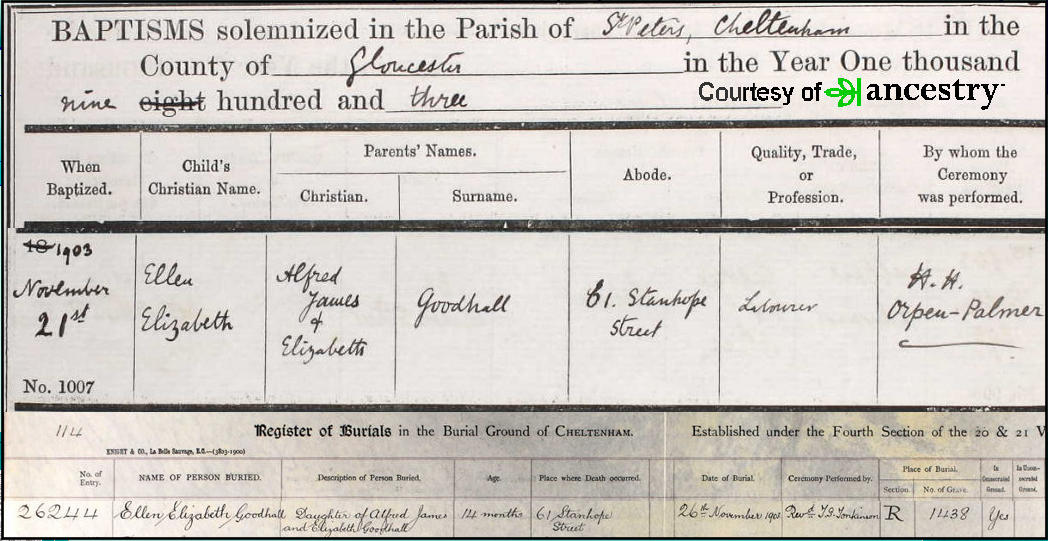 BAPTISMS solemnized in the Parish of St Peters, Cheltenham in the
County of Gloucester in the Year One thousand
nine eight hundred and three
Courtesy of ancestry
When Baptized.
Child's Christian Name.
Parents' Names.
Christian.
Surname.
Abode.
Quality, Trade, or Profession.
By whom the Ceremony was performed.
18 1903
November
21st
No. 1007
Ellen
Elizabeth
Alfred
James
&
Elizabeth
Goodhall
61. Stanhope
Street
Labourer
H. H.
Orpen-Palmer
114
Register of Burials in the Burial Ground of CHELTENHAM.
Established under the Fourth Section of the 20 & 21 V
KNIGHT & CO., La Belle Sauvage, E.C.—(3803-1900)
No. of Entry.
NAME OF PERSON BURIED.
Description of Person Buried.
Age.
Place where Death occurred.
Date of Burial.
Ceremony Performed by.
Place of Burial.
Section.
No. of Grave.
In Consecrated Ground.
In Uncon-secrated Ground.
26244
Ellen Elizabeth Goodhall
Daughter of Alfred James
and Elizabeth Goodhall
14 months
61 Stanhope
Street
26th November 1903
Revd T. G. Tonkinson
R
1438
Yes